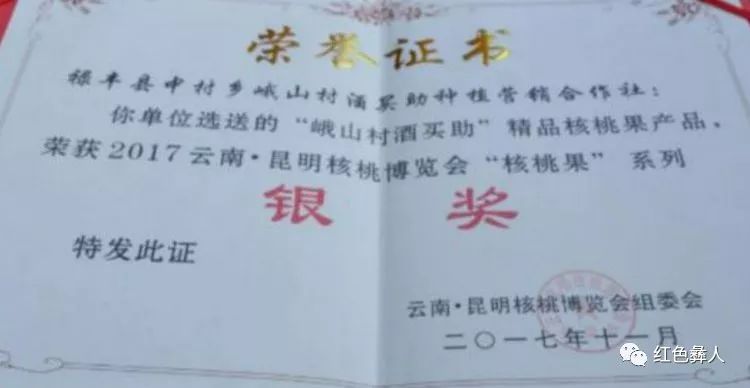 荣誉证书
禄丰县中村乡峨山村酒买助种植营销合作社：
你单位选送的“峨山村酒买助”精品核桃果产品，
荣获2017云南·昆明核桃博览会“核桃果”系列
银奖
特发此证
云南·昆明核桃博览会组委会
二〇一七年十一月
红色彝人